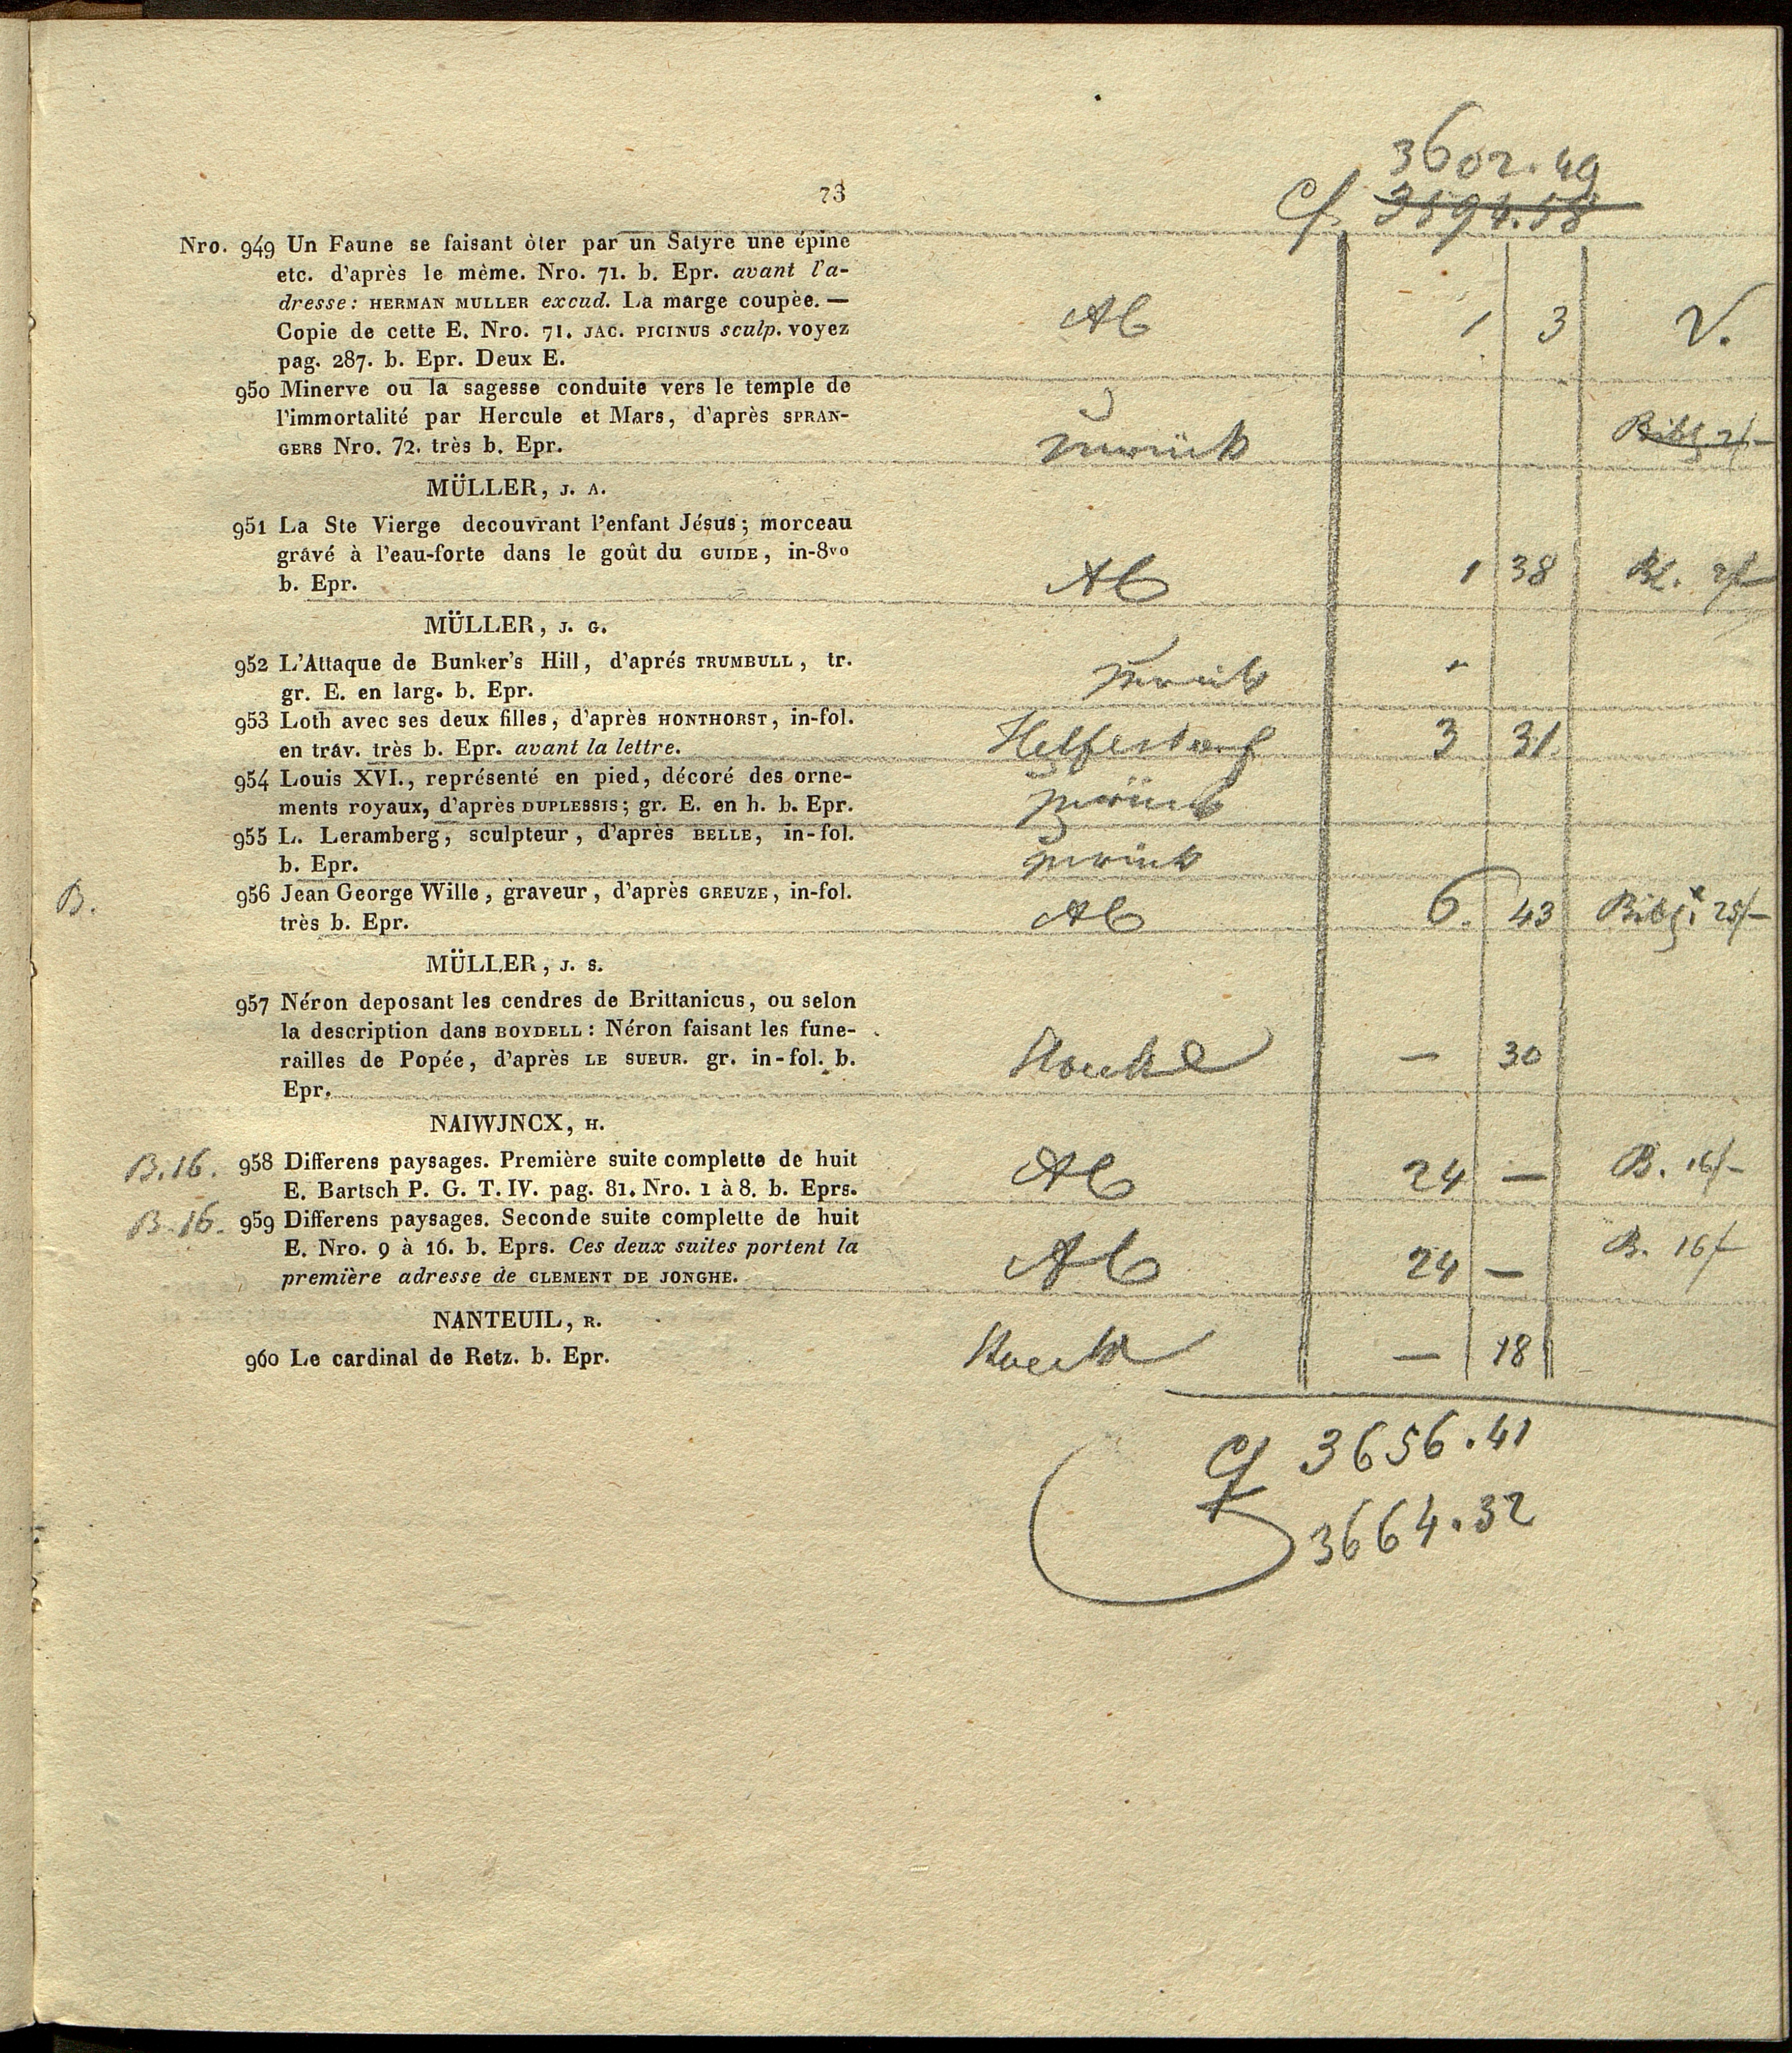 3602.49
73
Cf 3594.58
Nro. 949 Un Faune se faisant òter par un Satyre une épine
etc. d'après le mème. Nro. 71. b. Epr. avant l'a-
dresse: HERMAN MULLER excud. La marge coupèe. —
Copie de cette E. Nro. 71. JAC. PICINUS sculp. voyez
pag. 287. b. Epr. Deux E.
Ab 1 3 V.
950 Minerve ou la sagesse conduite vers le temple de
l'immortalité par Hercule et Mars, d'après SPRAN-
GERS Nro. 72. très b. Epr.
zurück Bibl. 2f—
MÜLLER, J. A.
951 La Ste Vierge decouvrant l'enfant Jésus; morceau
grávé à l'eau-forte dans le goût du GUIDE, in-8vo
b. Epr.
Ab 1 38 Bl. 2f
MÜLLER, J. G.
952 L'Attaque de Bunker's Hill, d'aprés TRUMBULL, tr.
gr. E. en larg. b. Epr.
zurück
953 Loth avec ses deux filles, d'après HONTHORST, in-fol.
en tráv. très b. Epr. avant la lettre.
3 31.
954 Louis XVI., représenté en pied, décoré des orne-
ments royaux, d'après DUPLESSIS; gr. E. en h. b. Epr.
zurück
955 L. Leramberg, sculpteur, d'après BELLE, in-fol.
b. Epr.
zurück
B. 956 Jean George Wille, graveur, d'après GREUZE, in-fol.
très b. Epr.
Ab 6. 43 Bibl. 25f—
MÜLLER, J. S.
957 Néron deposant les cendres de Brittanicus, ou selon
la description dans BOYDELL: Néron faisant les fune-
railles de Popée, d'après LE SUEUR. gr. in-fol. b.
Epr.
— 30
NAIWJNCX, H.
B.16. 958 Differens paysages. Première suite complette de huit
E. Bartsch P. G. T. IV. pag. 81. Nro. 1 à 8. b. Eprs.
Ab 24 — B. 16f—
B.16. 959 Differens paysages. Seconde suite complette de huit
E. Nro. 9 à 16. b. Eprs. Ces deux suites portent la
première adresse de CLEMENT DE JONGHE.
Ab 24 — B. 16f
NANTEUIL, R.
960 Le cardinal de Retz. b. Epr.
— 18
Cf 3656.41
3664.32